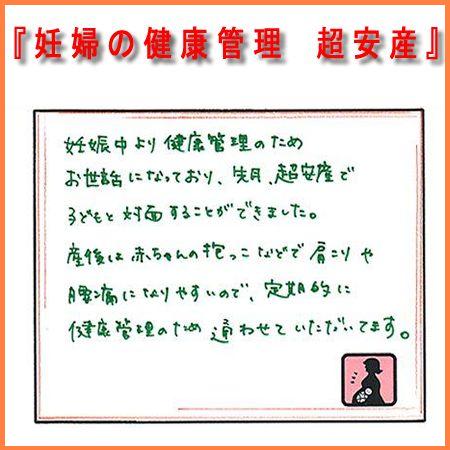 『妊婦の健康管理　超安産』
妊娠中より健康管理のため
お世話になっており、先月、超安産で
子どもと対面することができました。
産後は赤ちゃんの抱っこなどで肩こりや
腰痛になりやすいので、定期的に
健康管理のため通わせていただいてます。